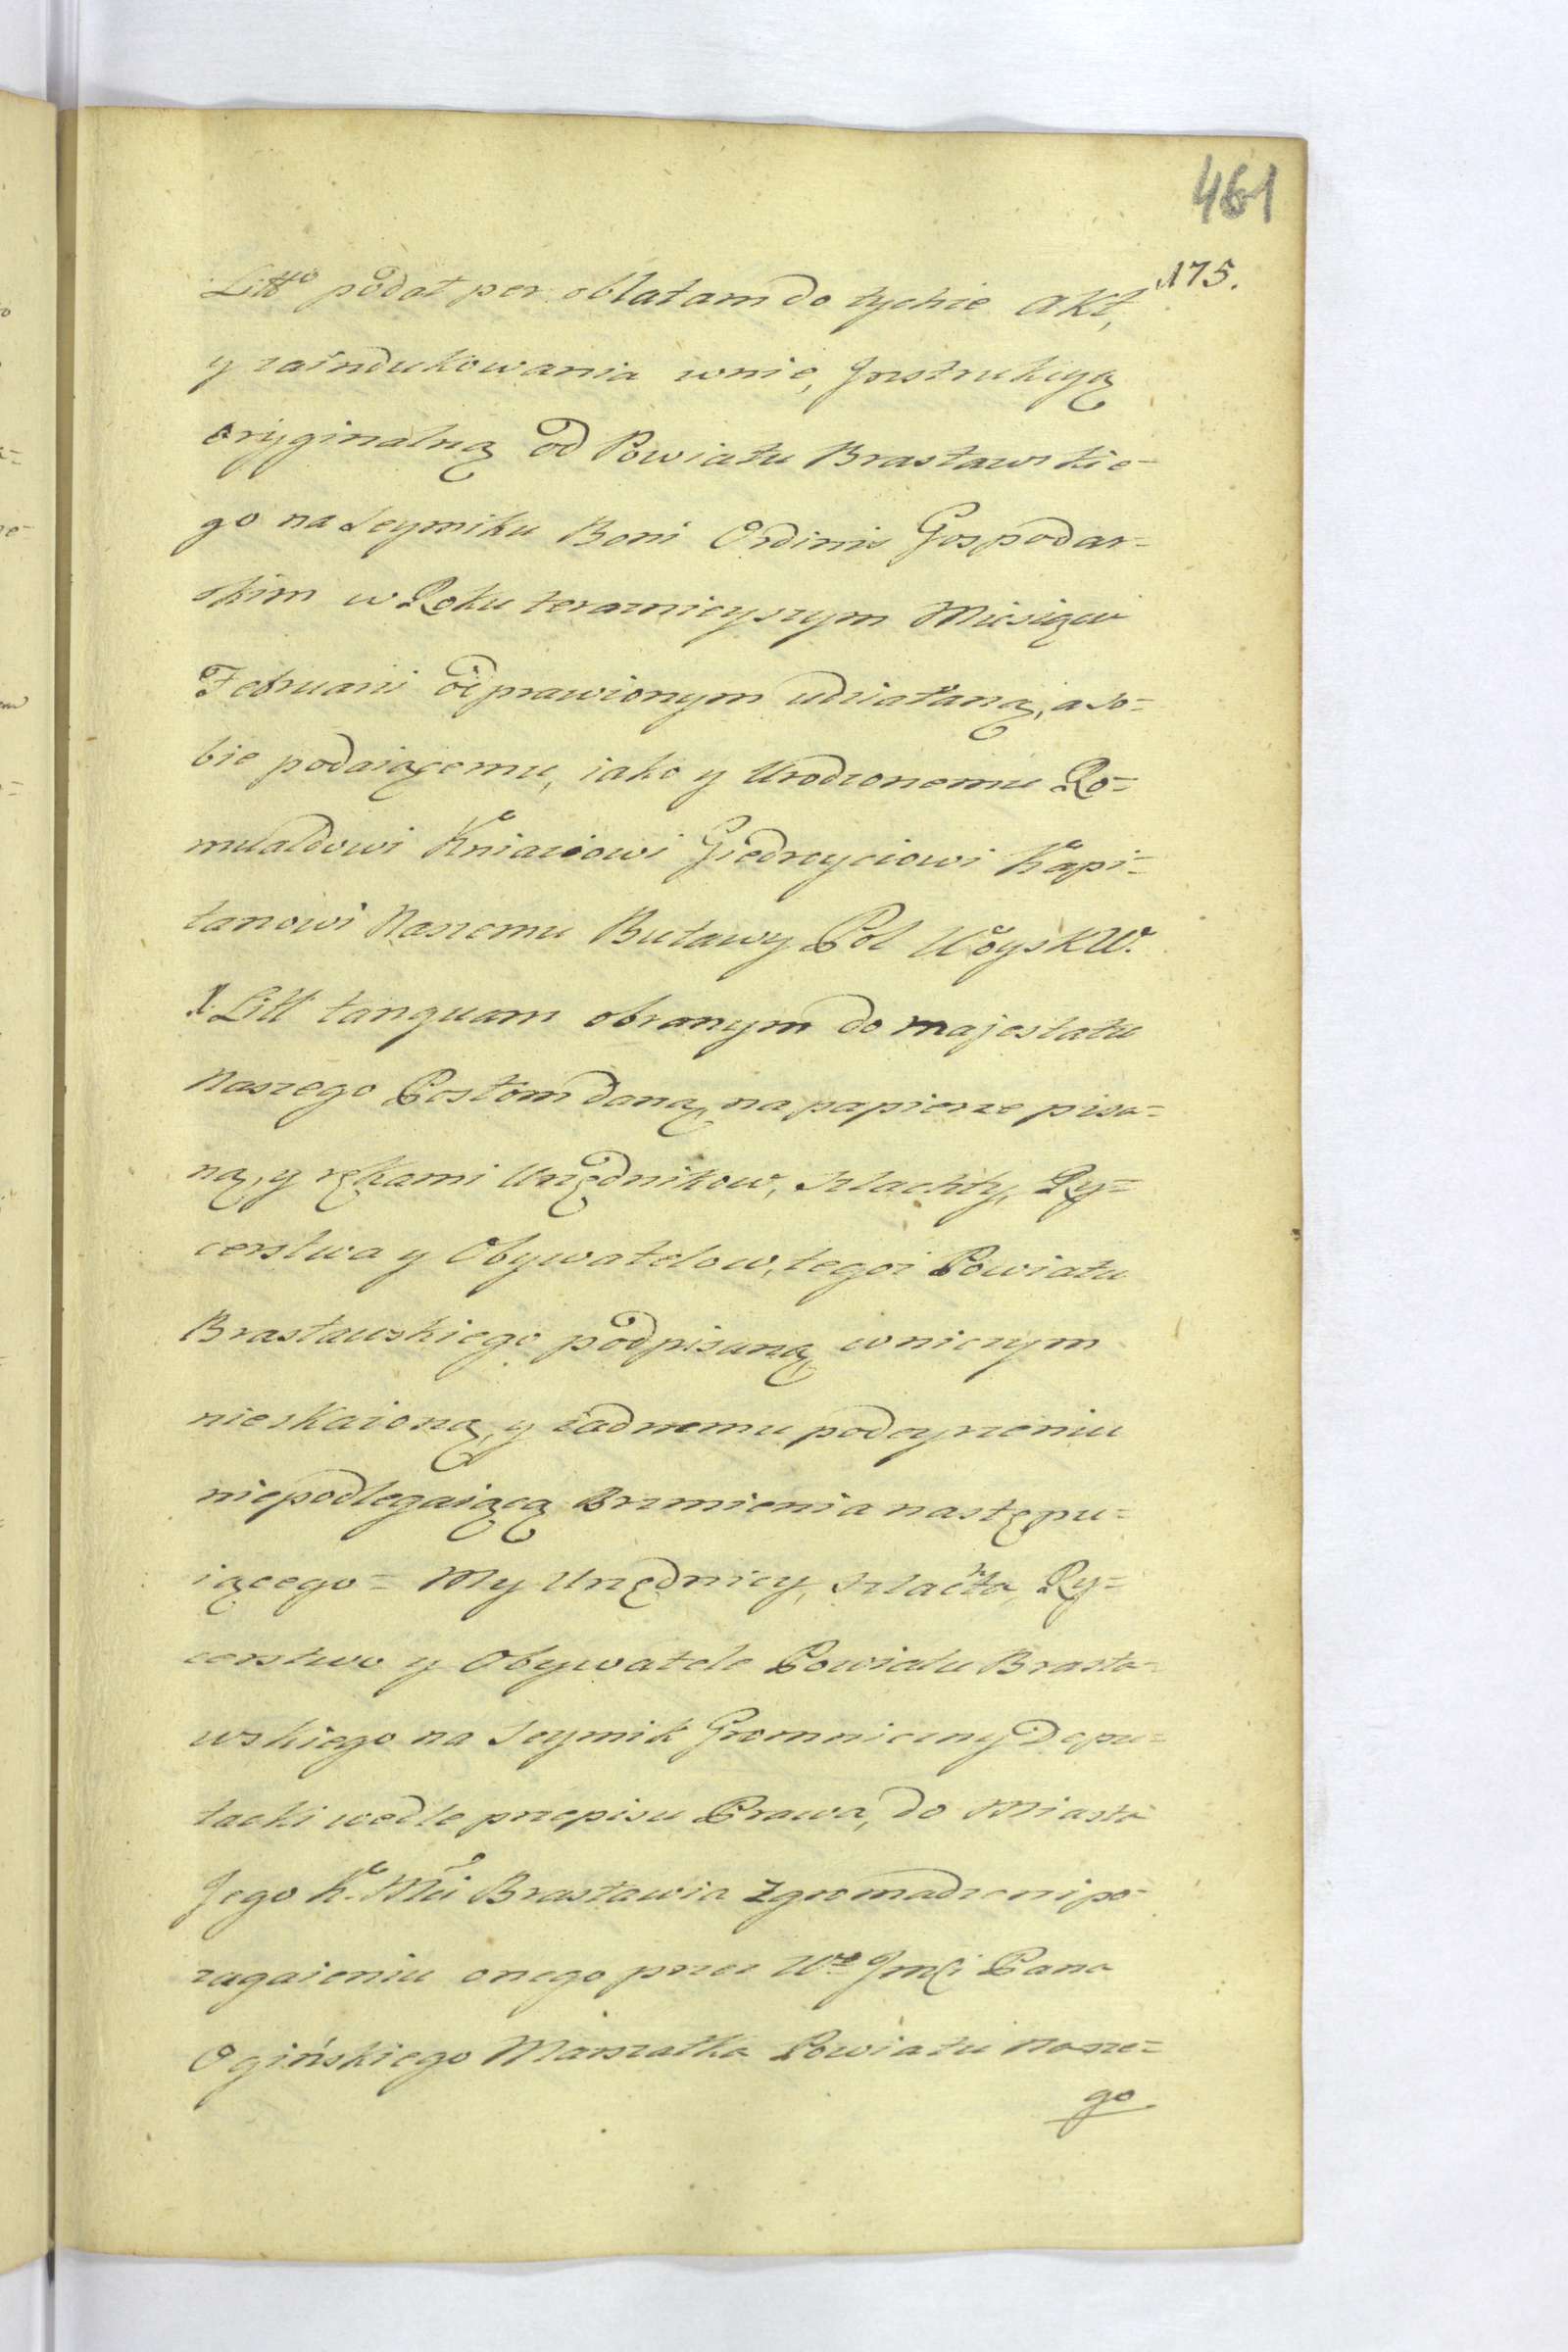 461
175.
Litto podał per oblatam do tychże Akt,
y zaindukowania wnie, Jnstrukcyą
oryginalną od Powiatu Brasławskie-
go na Seymiku Boni Ordinis Gospodar-
skim w Roku teraznieyszym Miesiącu
Februarii odprawionym udziałaną, a so=
bie podaiącemu, iako y Urodzonemu Ro=
mualdowi Kniaziowi Giedroyciowi Kapi=
tanowi Naszemu Buławy Pol Woysk W.
X. Litt tanquam obranym do majestatu
Naszego Posłom daną, na papierze pisa=
ną, y rękami Urzędnikow, Szlachty, Ry=
cerstwa y Obywatelow, tegoż Powiatu
Brasławskiego podpisaną wniczym
nieskażoną, y żadnemu podeyrzeniu
niepodlegaiącą Brzmienia następu=
iącego = My Urzędnicy, Szlachta, Ry=
cerstwo y Obywatele Powiatu Brasła-
wskiego na Seymik Gromniczny Depu=
tacki wedle przepisu Prawa, do Miasta
Jego K. Mci Brasławia zgromadzeni po-
zagaieniu onego przez Wo Jmći Pana
Ogińskiego Marszałka Powiatu Nasze=
go